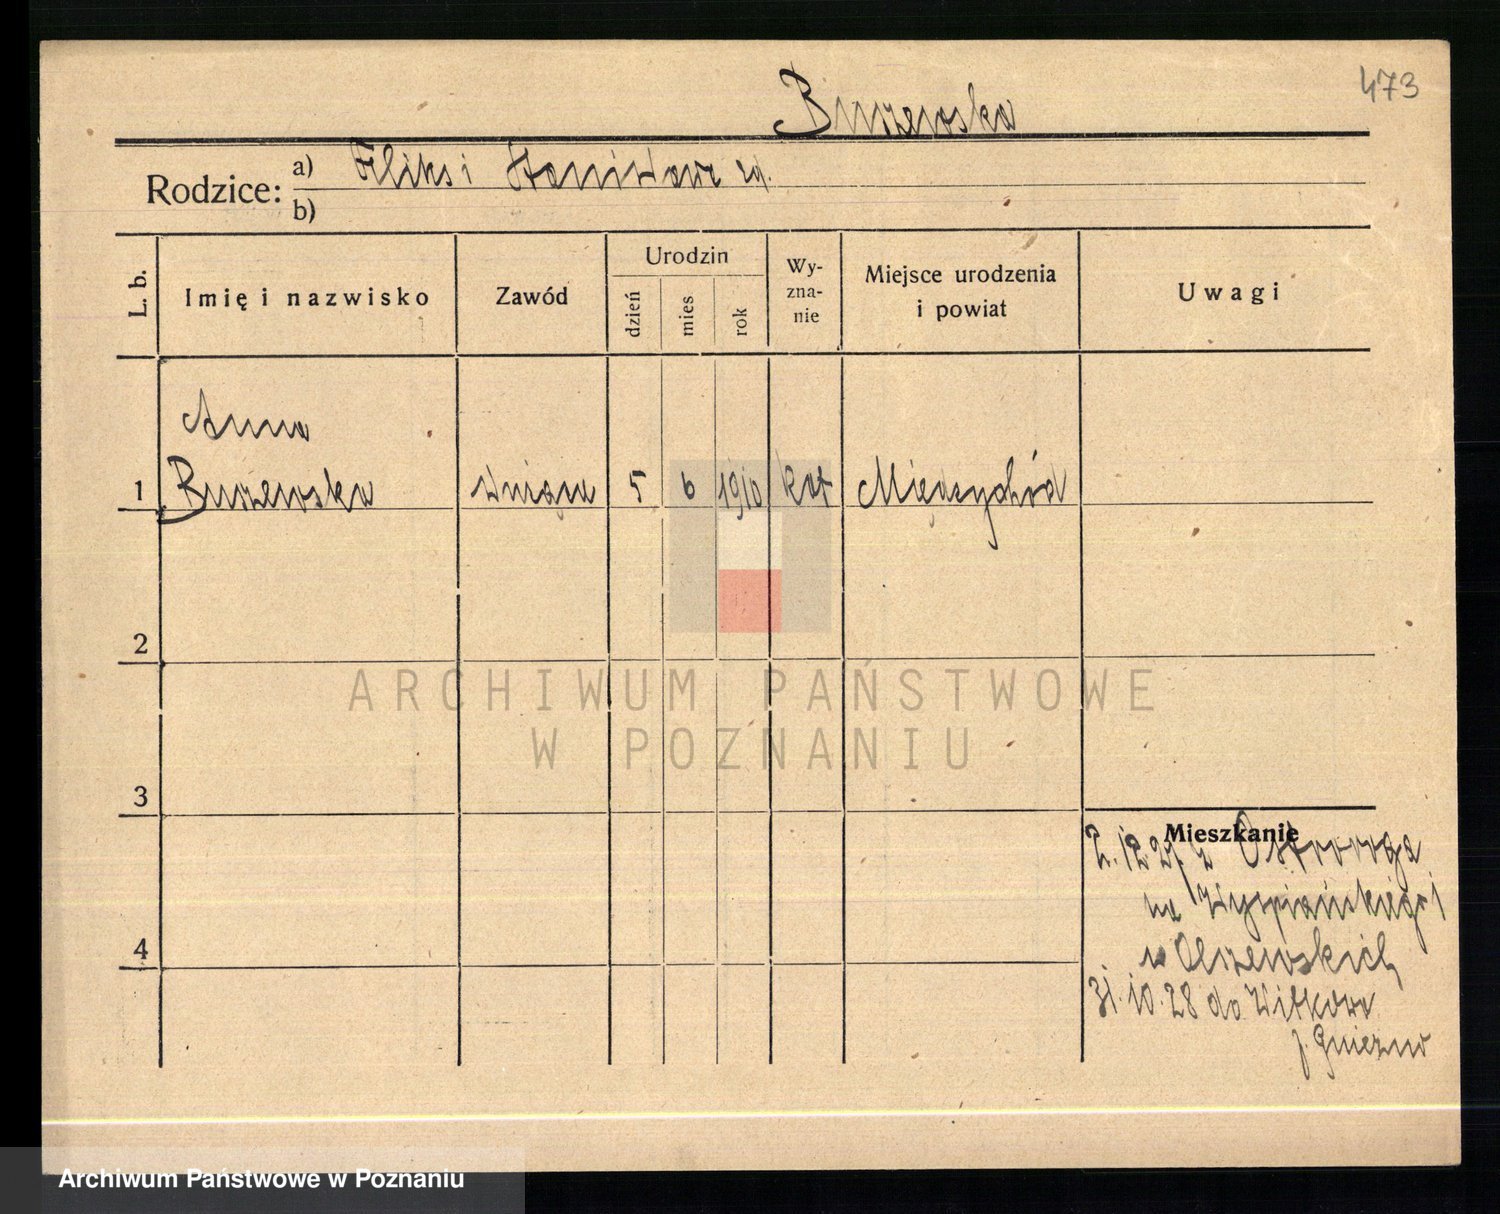 473
Buszewska
Rodzice: a) Feliks i Stanisława
b)
L. b.
Imię i nazwisko
Zawód
Urodzin
dzień
mies
rok
Wy-
zna-
nie
Miejsce urodzenia
i powiat
Uwagi
Anna
1 Buszewska 5 6 1910 kat Międzychód
2
3
4
Mieszkanie
2.12.27 z Ostroroga
na Wyspiańskiego 1
u Olszewskich
31.10.28 do Witkowo
p. Gniezno
ARCHIWUM PAŃSTWOWE
W POZNANIU
Archiwum Państwowe w Poznaniu